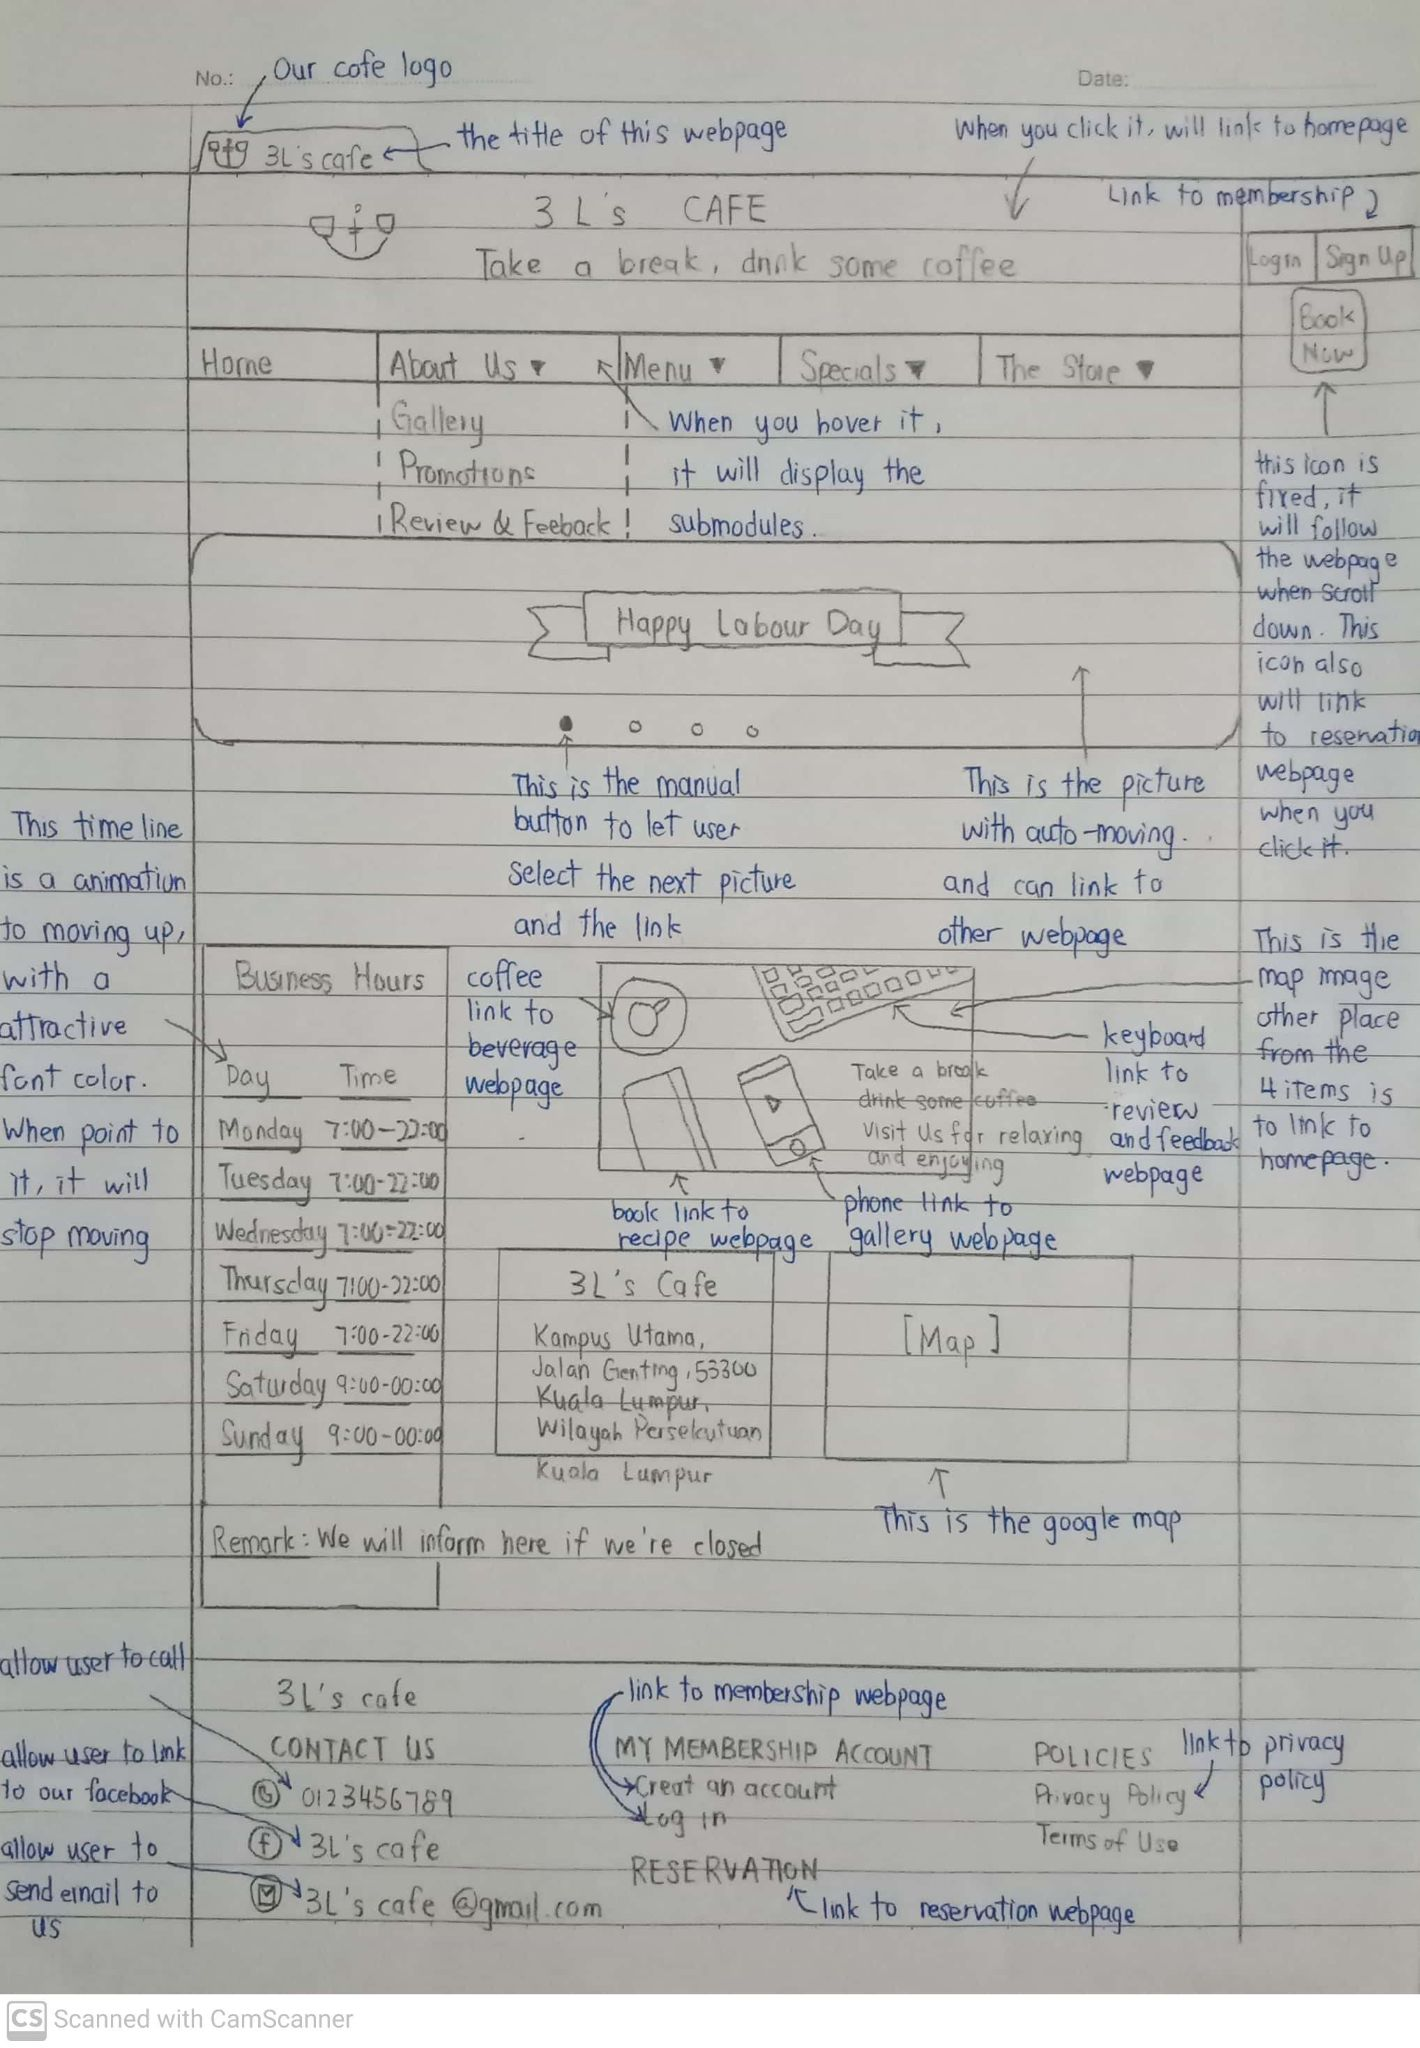 No.:
Our cofe logo
Date:
3L's cafe
the title of this webpage
When you click it, will link to homepage
Link to membership
3 L's CAFE
Take a break, drink some coffee
Login
Sign Up
Book
Now
Home
About Us ▼
Menu ▼
Specials ▼
The Store ▼
Gallery
Promotions
Review & Feeback
When you hover it,
it will display the
submodules.
this icon is
fixed, it
will follow
the webpage
when scroll
down. This
icon also
will link
to reservatio
webpage
when you
click it.
Happy Labour Day
This is the manual
button to let user
select the next picture
and the link
This is the picture
with auto-moving.
and can link to
other webpage
This time line
is a animation
to moving up,
with a
attractive
font color.
When point to
it, it will
stop moving
Business Hours
Day Time
Monday 7:00-22:00
Tuesday 7:00-22:00
Wednesday 7:00-22:00
Thursday 7:00-22:00
Friday 7:00-22:00
Saturday 9:00-00:00
Sunday 9:00-00:00
Remark: We will inform here if we're closed
coffee
link to
beverage
webpage
Take a break
drink some coffee
visit us for relaxing
and enjoying
keyboard
link to
review
and feedback
webpage
This is the
map image
other place
from the
4 items is
to link to
homepage.
book link to
recipe webpage
phone link to
gallery webpage
3L's Cafe
Kampus Utama,
Jalan Genting, 53300
Kuala Lumpur,
Wilayah Persekutuan
Kuala Lumpur
[Map]
This is the google map
allow user to call
allow user to link
to our facebook
allow user to
send email to
us
3L's cafe
CONTACT US
0123456789
f 3L's cafe
3L's cafe @gmail.com
link to membership webpage
MY MEMBERSHIP ACCOUNT
Creat an account
Log in
RESERVATION
link to reservation webpage
POLICIES
link to privacy
policy
Privacy Policy
Terms of Use
CS Scanned with CamScanner